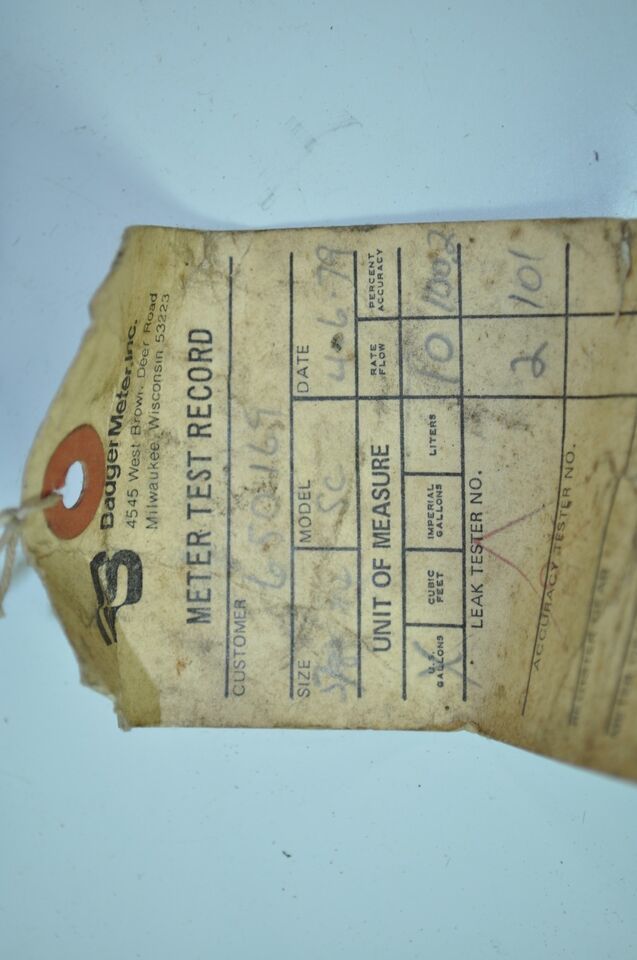 Badger Meter, Inc.
4545 West Brown Deer Road
Milwaukee, Wisconsin 53223
METER TEST RECORD
CUSTOMER
650169
SIZE MODEL SC DATE 4-6-79
UNIT OF MEASURE RATE FLOW PERCENT ACCURACY
U.S. GALLONS X CUBIC FEET IMPERIAL GALLONS LITERS 10 100.2
LEAK TESTER NO. 2 101
ACCURACY TESTER NO.